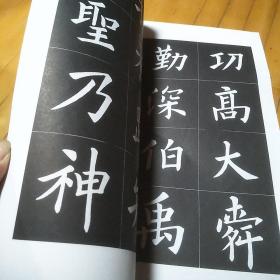 功髙大舜
勤深伯禹
聖乃神